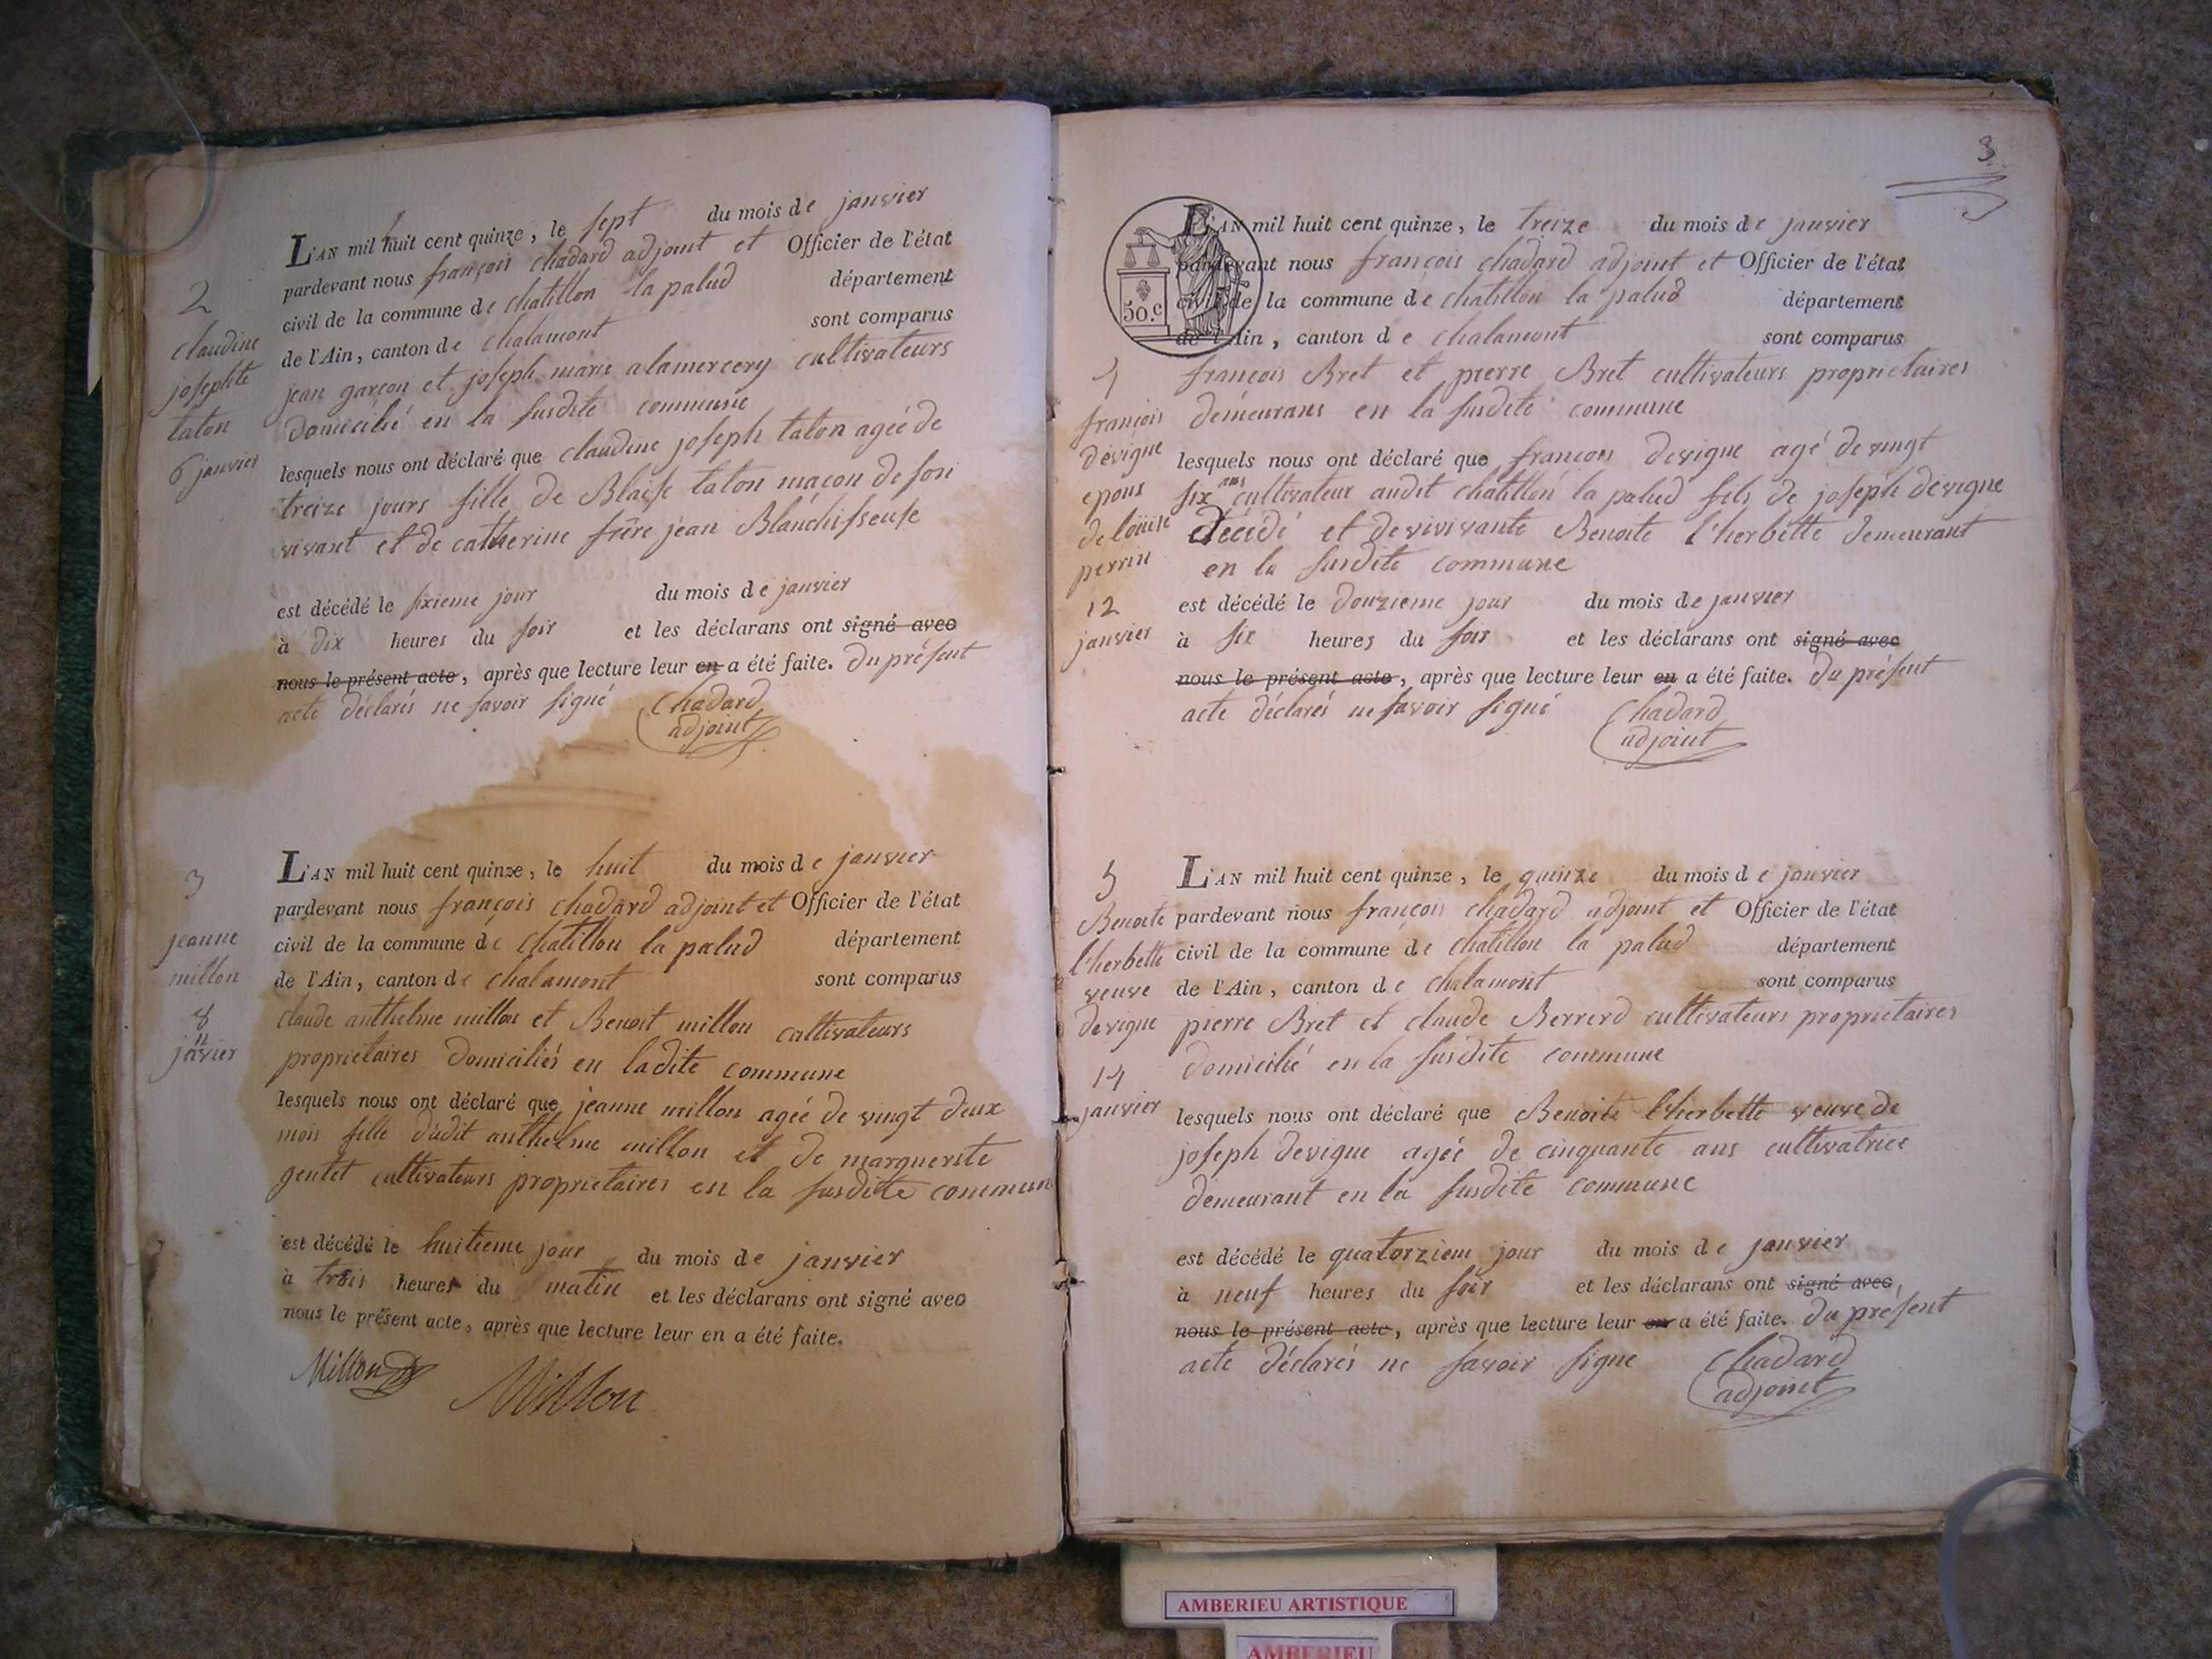 2
claudine
josephte
taton
6 janvier
L'AN mil huit cent quinze, le sept du mois de janvier
pardevant nous françois chadard adjoint et Officier de l'état
civil de la commune de chatillon la palud département
de l'Ain, canton de chalamont sont comparus
jean garçon et joseph marie alamercery cultivateurs
domicilié en la susdite commune
lesquels nous ont déclaré que claudine joseph taton ageé de
treize jours fille de Blaise taton maçon de son
vivant et de catherine jean Blanchisseuse
est décédé le sixieme jour du mois de janvier
à dix heures du soir et les déclarans ont signé avec
nous le présent acte, après que lecture leur en a été faite. Du présent
acte déclarés ne savoir signé Chadard
adjoint
3
jeanne
millon
8
janvier
L'AN mil huit cent quinze, le huit du mois de janvier
pardevant nous françois chadard adjoint et Officier de l'état
civil de la commune de chatillon la palud département
de l'Ain, canton de chalamont sont comparus
claude anthelme millon et Benoit millon cultivateurs
proprietaires domiciliés en ladite commune
lesquels nous ont déclaré que jeanne millon ageé de vingt deux
mois fille dudit anthelme millon et de marguerite
gentet cultivateurs proprietaires en la susdite commun
est décédé le huitieme jour du mois de janvier
à trois heures du matin et les déclarans ont signé avec
nous le présent acte, après que lecture leur en a été faite.
Millon Millon
3
50.c
L'AN mil huit cent quinze, le treize du mois de janvier
pardevant nous françois chadard adjoint et Officier de l'état
civil de la commune de chatillon la palud département
de l'Ain, canton de chalamont sont comparus
4
françois
devigne
epoux
de loüise
perrin
12
janvier
françois Bret et pierre Bret cultivateurs proprietaires
demeurans en la susdite commune
lesquels nous ont déclaré que françois devigne agé de vingt
six ans cultivateur audit chatillon la palud fils de joseph devigne
décédé et de vivivante Benoite l'herbette demeurant
en la susdite commune
est décédé le douzieme jour du mois de janvier
à six heures du soir et les déclarans ont signé avec
nous le présent acte, après que lecture leur en a été faite. Du présent
acte déclarés ne savoir signé Chadard
adjoint
5
Benoite
l'herbette
veuve
devigne
14
janvier
L'AN mil huit cent quinze, le quinze du mois de janvier
pardevant nous françois chadard adjoint et Officier de l'état
civil de la commune de chatillon la palud département
de l'Ain, canton de chalamont sont comparus
pierre Bret et claude Berrerd cultivateurs proprietaires
domicilié en la susdite commune
lesquels nous ont déclaré que Benoite l'herbette veuve de
joseph devigne ageé de cinquante ans cultivatrice
demeurant en la susdite commune
est décédé le quatorzieme jour du mois de janvier
à neuf heures du soir et les déclarans ont signé avec
nous le présent acte, après que lecture leur en a été faite. Du présent
acte déclarés ne savoir signe Chadard
adjoint
AMBERIEU ARTISTIQUE
AMBERIEU